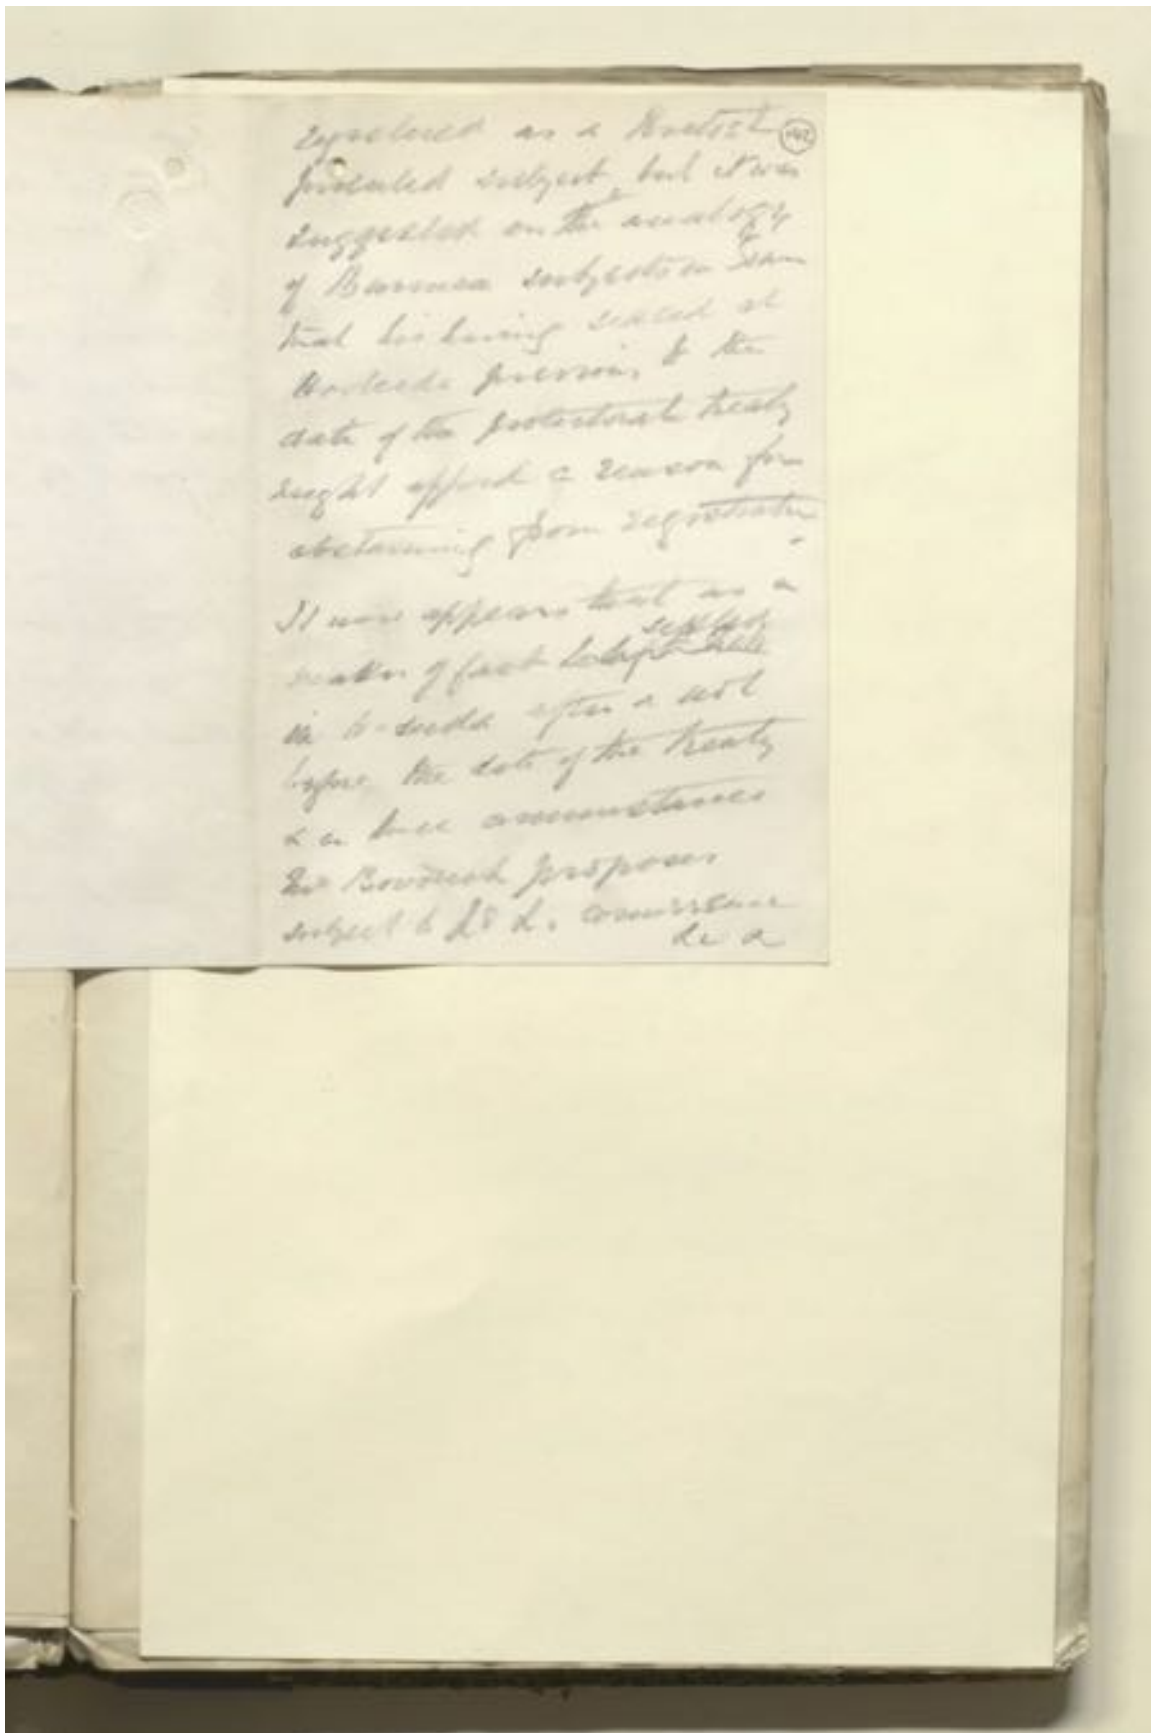 registered as a British
protected subject, but it was
suggested on the analogy
of Burmese subjects in Siam
that his having settled at
Hodeida previous to the
date of the protectorate treaty
might afford a reason for
abstaining from registration.
It now appears that as a
matter of fact he settled
in Hodeida after & not
before the date of the treaty
& in these circumstances
subject to Ld L. concurrence